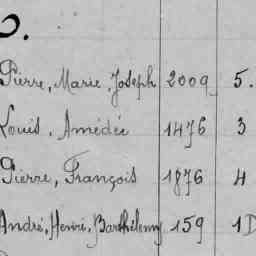 O.
Pierre, Marie, Joseph 2009 5.
Louis, Amédée 1476 3
Pierre, François 1876 4
André, Henri, Barthélemy 159 1D